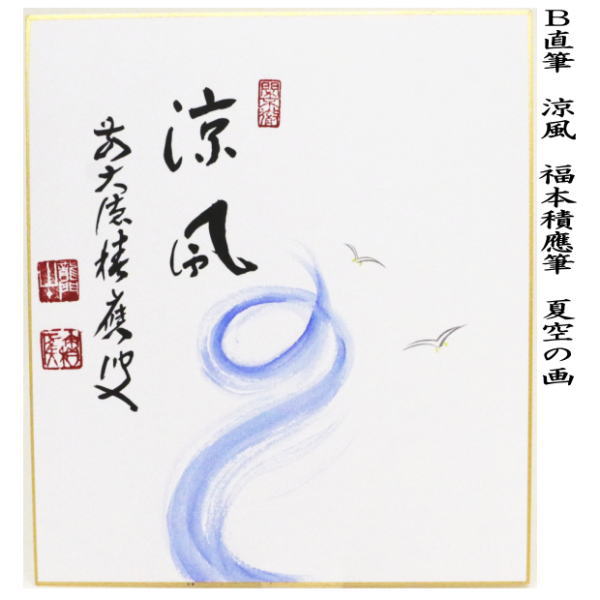 B直筆 涼風 福本積應筆 夏空の画
涼風
前大徳積應叟